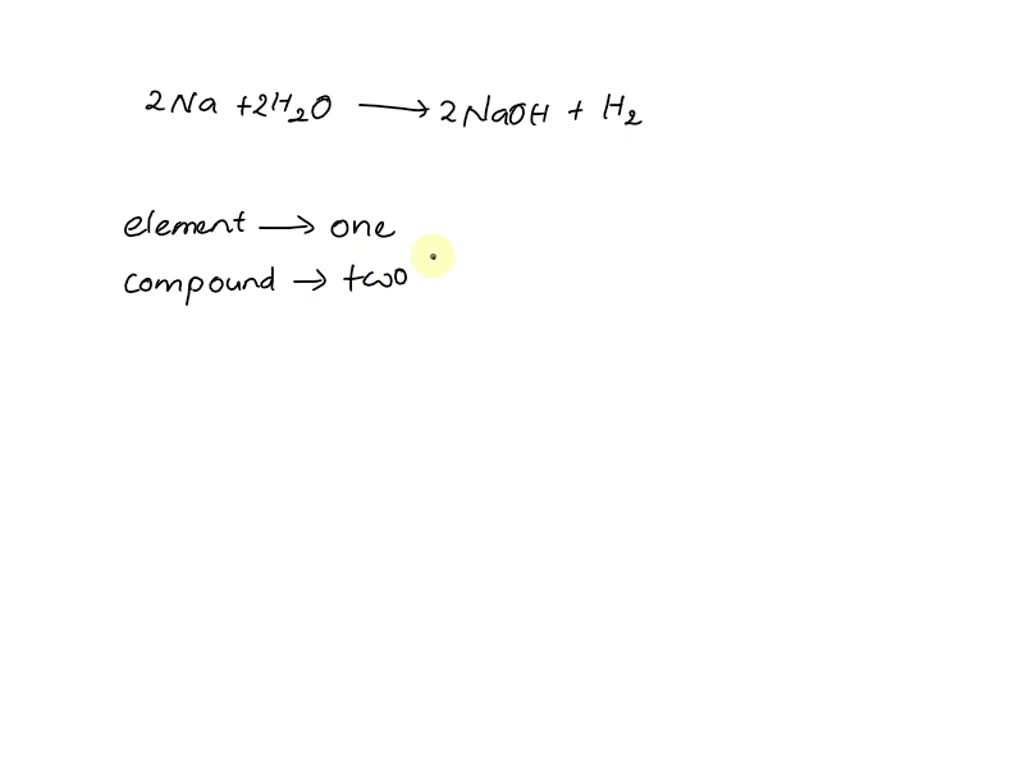 2Na + 2H₂O ⟶ 2NaOH + H₂
element ⟶ one
compound → two